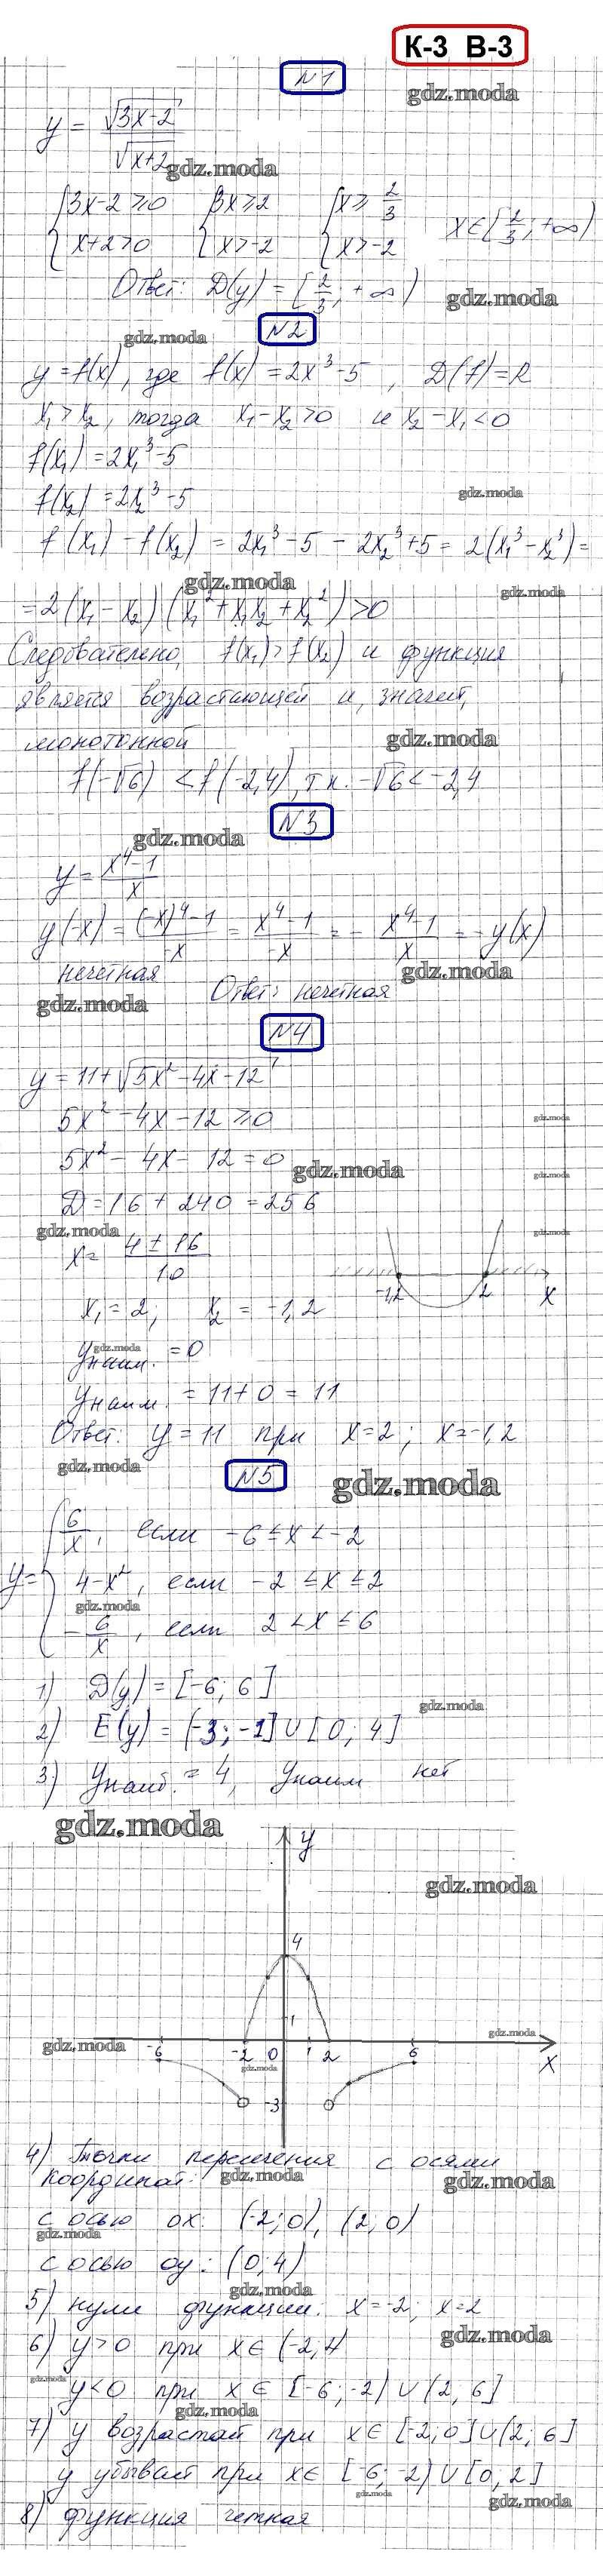 К-3 В-3
N1
gdz.moda
y = √3x-2 / √x+2
gdz.moda
{3x-2≥0 {3x≥2 {x≥ 2/3
{x+2>0 {x>-2 {x>-2 x∈[2/3; +∞)
Ответ: D(y) = [2/3; +∞)
gdz.moda
N2
gdz.moda
y=f(x), где f(x) = 2x³-5, D(f)=R
x₁>x₂, тогда x₁-x₂>0 и x₂-x₁<0
f(x₁) = 2x₁³-5
f(x₂) = 2x₂³-5
gdz.moda
f(x₁) - f(x₂) = 2x₁³-5 - 2x₂³+5 = 2(x₁³-x₂³) =
gdz.moda
gdz.moda
= 2(x₁-x₂)(x₁²+x₁x₂+x₂²)>0
Следовательно, f(x₁)>f(x₂) и функция
является возрастающей и, значит,
монотонной
gdz.moda
f(-√6) < f(-2,4), т.к. -√6<-2,4
N3
gdz.moda
y = x⁴-1 / x
y(-x) = (-x)⁴-1 / -x = x⁴-1 / -x = - x⁴-1 / x = -y(x)
нечетная
gdz.moda
gdz.moda
Ответ: нечетная
N4
y = 11+√5x²-4x-12
5x²-4x-12≥0
gdz.moda
5x²-4x-12=0
gdz.moda
gdz.moda
D=16+240=256
gdz.moda
gdz.moda
x= 4±16 / 10
-1,2 2 x
x₁=2; x₂ = -1,2
gdz.moda
yнаим. =0
yнаим. = 11+0 = 11
Ответ: y=11 при x=2; x=-1,2
gdz.moda
N5
gdz.moda
y= { 6/x, если -6≤x<-2
4-x², если -2≤x≤2
gdz.moda
-6/x, если 2<x≤6
1) D(y) = [-6; 6]
gdz.moda
2) E(y) = (-3; -1]∪[0; 4]
3) yнаиб.=4, yнаим нет
gdz.moda
y
gdz.moda
4
1
gdz.moda
gdz.moda
-6 -2 0 1 2 6 x
gdz.moda
-3
4) Точки пересечения с осями
координат:
gdz.moda
gdz.moda
с осью ox: (-2;0), (2;0)
gdz.moda
с осью oy: (0;4)
gdz.moda
5) нули функции: x=-2, x=2
gdz.moda
6) y>0 при x∈(-2,
gdz.moda
y<0 при x∈[-6;-2)∪(2,6]
gdz.moda
7) y возрастает при x∈[-2;0]∪(2; 6]
y убывает при x∈[-6;-2)∪[0,2]
gdz.moda
gdz.moda
8) функция четная